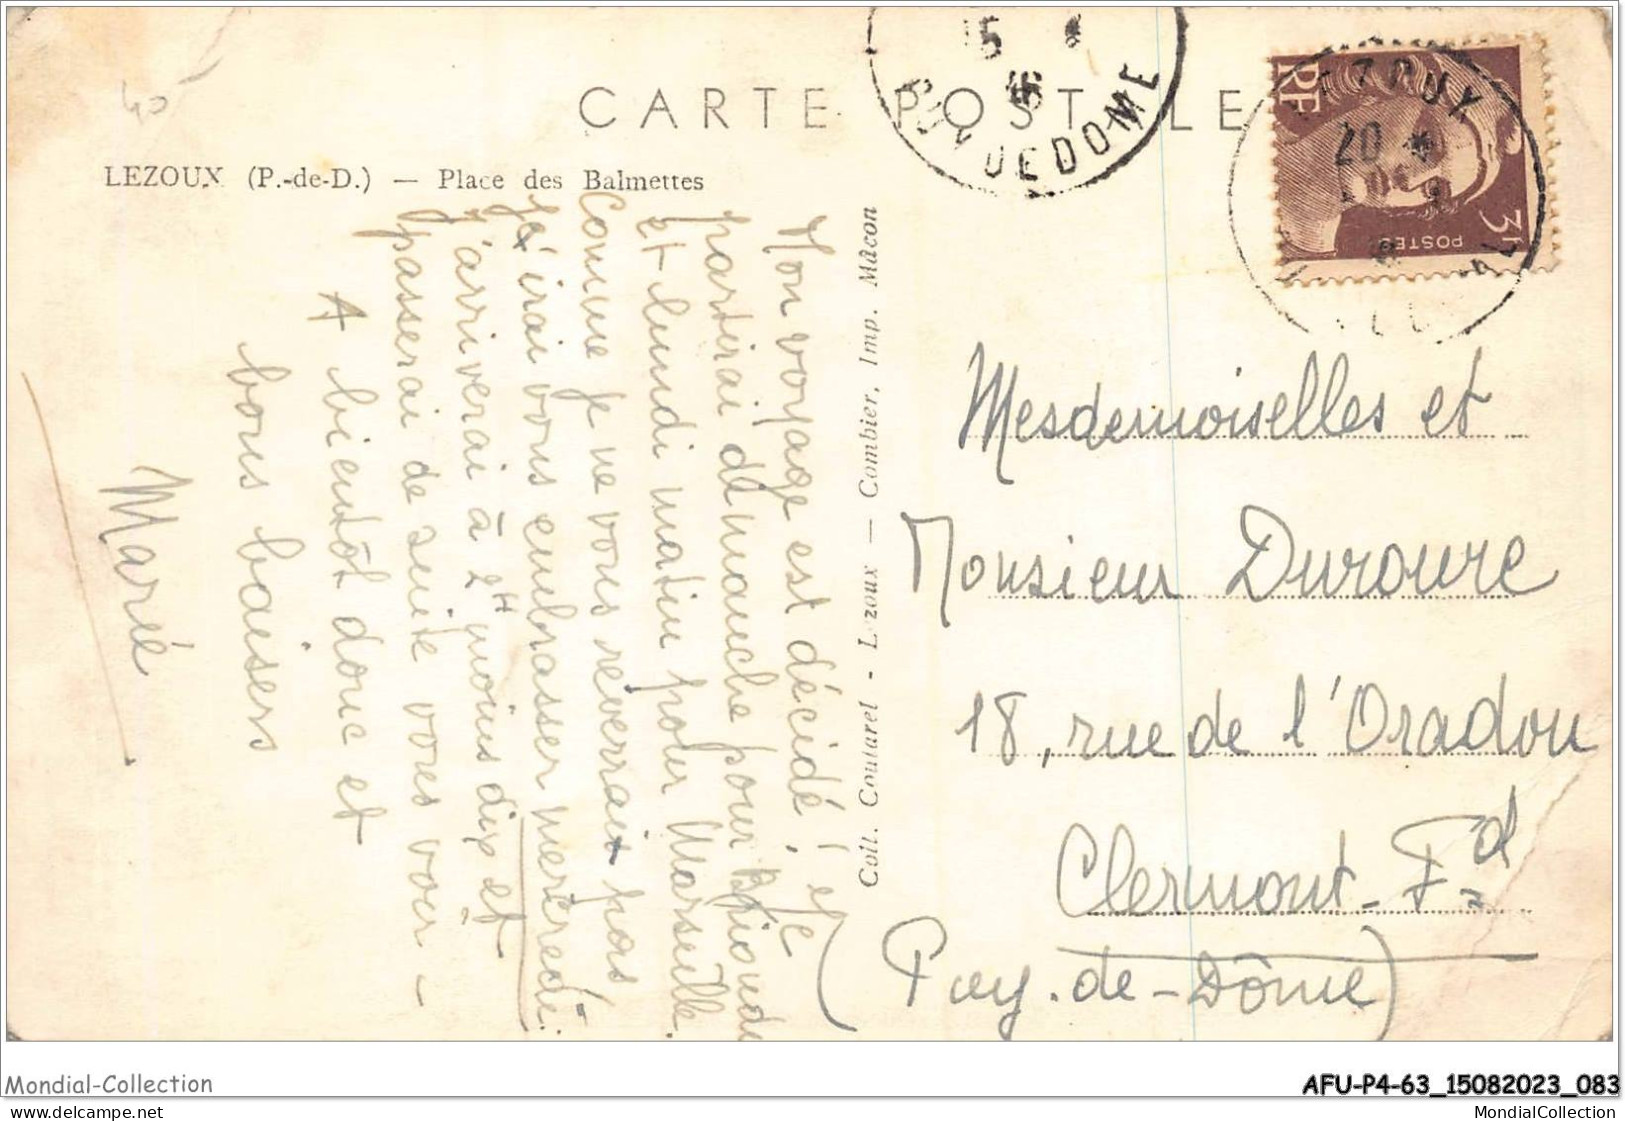 CARTE POSTALE
LEZOUX (P.-de-D.) — Place des Balmettes
40
15
PUY DE DOME
RF
3F
POSTES
20
Mon voyage est décidé ! et je
partirai dimanche pour Brioude
et lundi matin pour Marseille.
Comme je ne vous reverrai pas
j'irai vous embrasser mercredi.
J'arriverai à 2H moins dix et
passerai de suite vous voir –
A bientôt donc et
bons baisers
Marie
Coll. Coutarel - Lezoux — Combier, Imp. Mâcon
Mesdemoiselles et
Monsieur Duroure
18, rue de l'Oradou
Clermont-Fd
(Puy-de-Dôme)
Mondial-Collection
www.delcampe.net
AFU-P4-63_15082023_083
MondialCollection